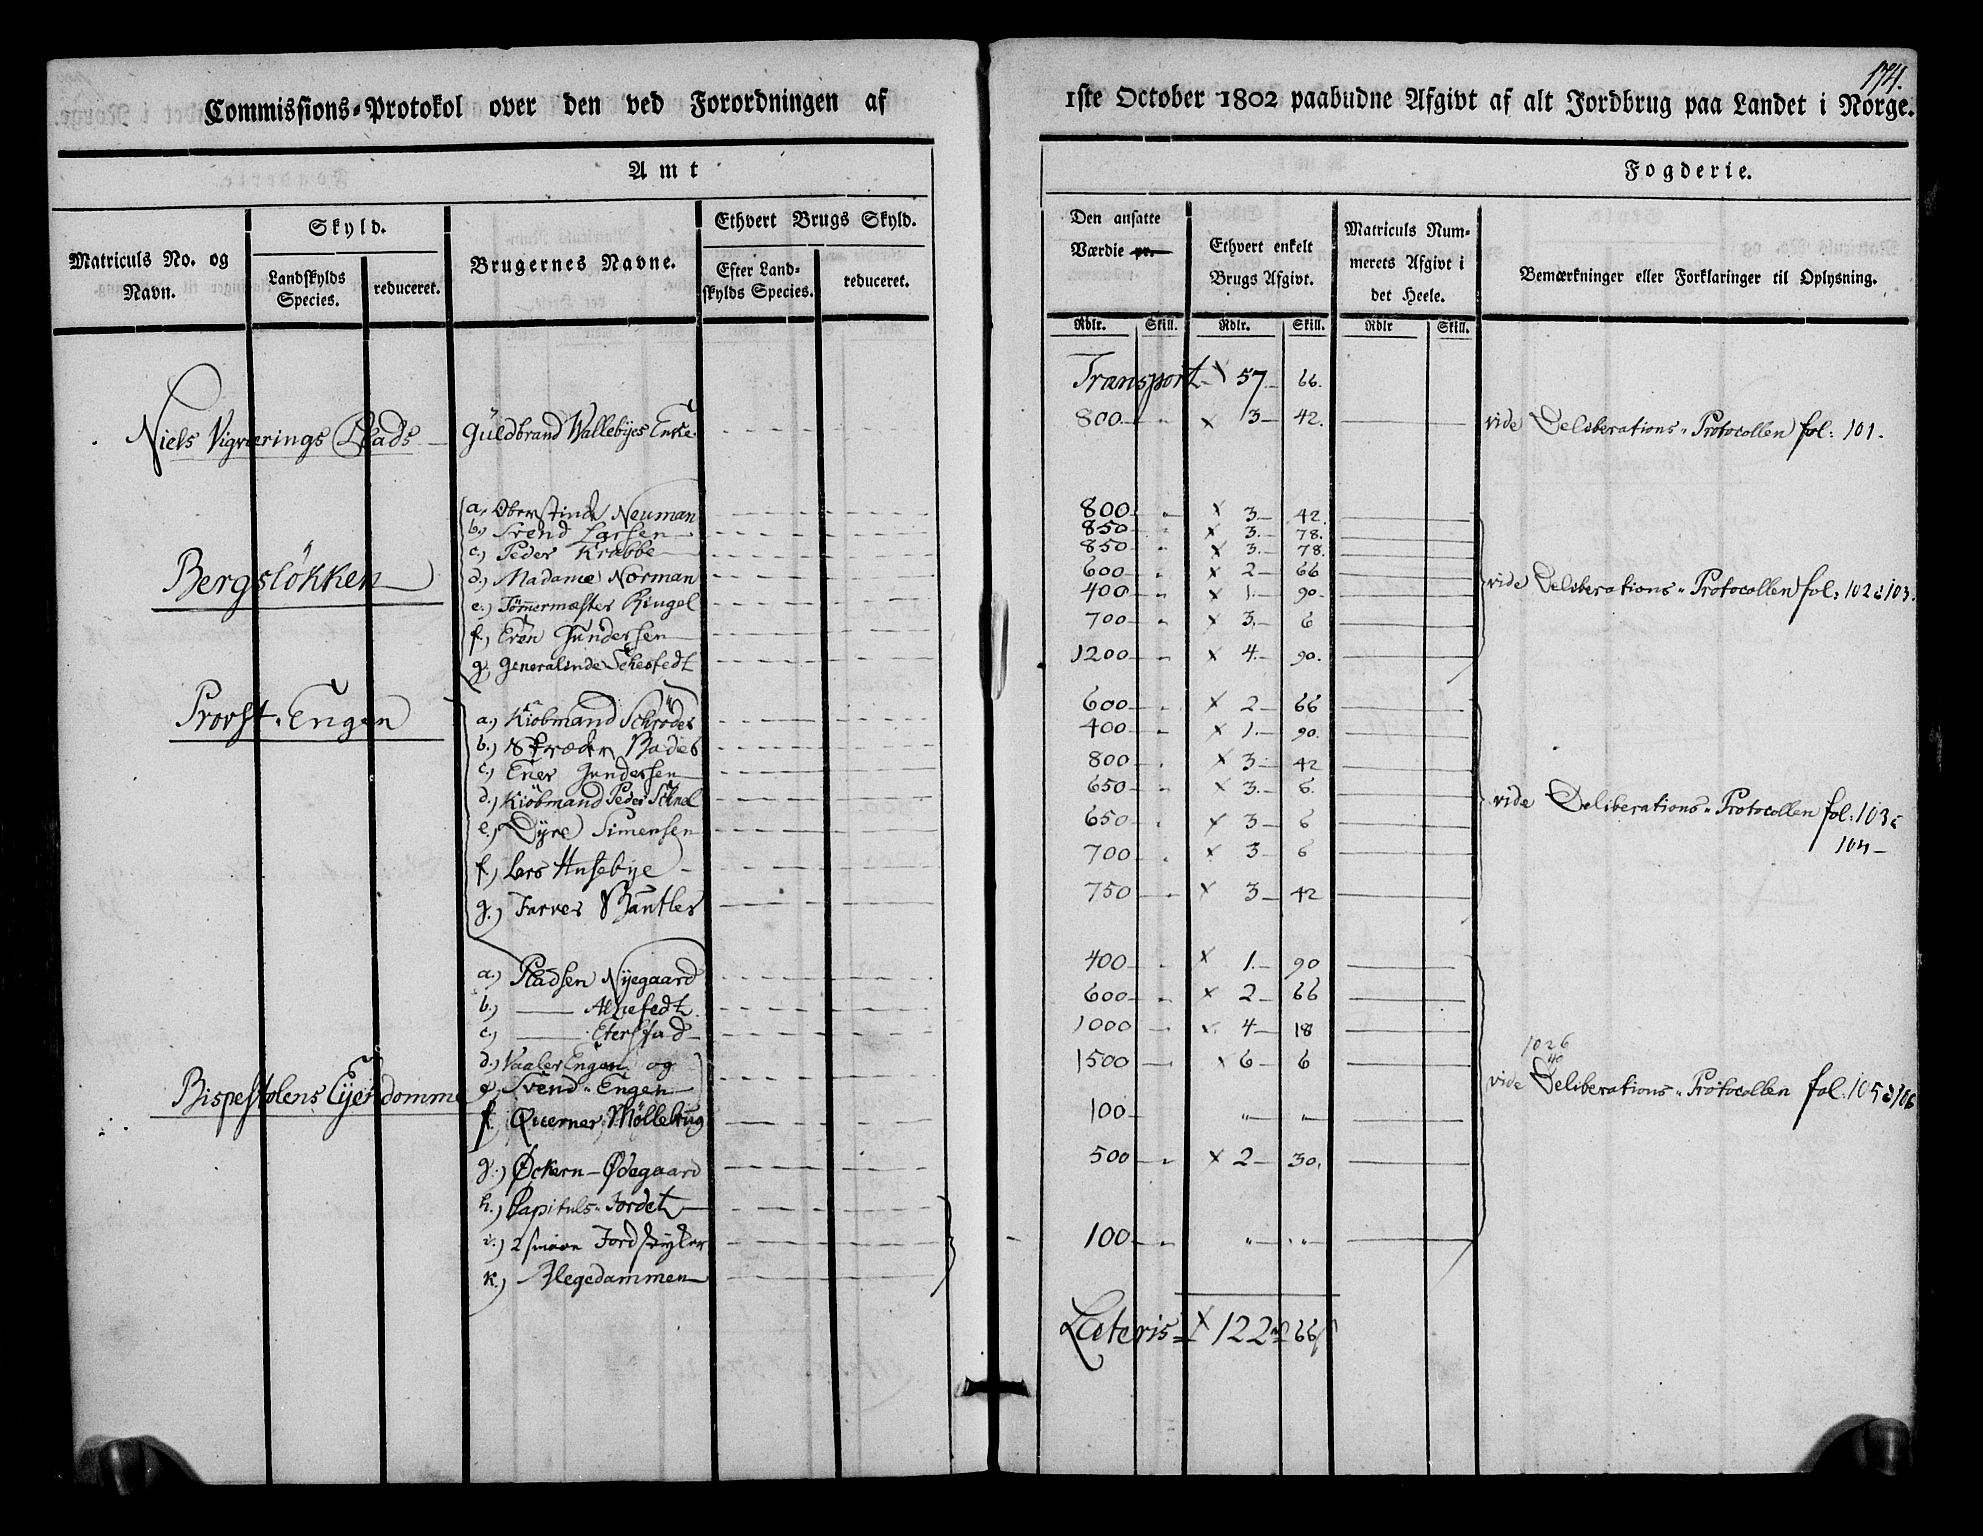 174.
Commissions-Protokol over den ved Forordningen af 1ste October 1802 paabudne Afgivt af alt Jordbrug paa Landet i Norge.
Amt
Fogderie.
Matriculs No. og Navn.
Skyld.
Landskylds Species.
reduceret.
Brugernes Navne.
Ethvert Brugs Skyld.
Efter Landskylds Species.
reduceret.
Den ansatte Værdie pr.
Ethvert enkelt Brugs Afgivt.
Matriculs Nummerets Afgivt i det Heele.
Bemærkninger eller Forklaringer til Oplysning.
Rdlr. Skill. Rdlr. Skill. Rdlr Skill.
Transport 57 66.
Niels Vigværings Plads Guldbrand Wallebyes Enke 800 3 42. vide Deliberations-Protocollen fol: 101.
Bergsløkken
a, Oberstinde Neuman 800 3 42.
b,) Svend Larsen 850 3 78.
c,) Peder Krabbe 850 3 78.
d,) Madame Norman 600 2 66
e,) Tømmermester Ringel 400 1 90
f,) Erøn Gundersen 700 3 6
g, Generalinde Schesfedt 1200 4 90.
vide Deliberations-Protocollen fol: 102 & 103.
Provst-Engen
a,) Kiøbmand Schrøder 600 2 66
b,) Skræder Bades 400 1 90.
c,) Ener Gundersen 800 3 42
d,) Kiøbmand Peder Schnel 650 3 6.
e,) Dyre Simensen 650 3 6
f,) Lars Husebye 700 3 6
g,) Farver Bantler 750 3 42
vide Deliberations-Protocollen fol: 103 & 104
Bispestolens Eyendomme
a,) Pladsen Nyegaard 400 1 90
b,) — Alnefedt 600 2 66
c,) — Eterstad 1000 4 18
d,) Vaaler Engen og 1500 6 6
e,) Svend-Engen
f. Querner Møllebrug 100 " "
g,) Øckern-Ødegaard 500 2 30.
h,) Capituls-Jordet
i,) 2 smaae Jordstykker 100 " "
k,) Vlegedammen
1026
40
vide Deliberations-Protocollen fol: 105 & 106
Lateris 122 66